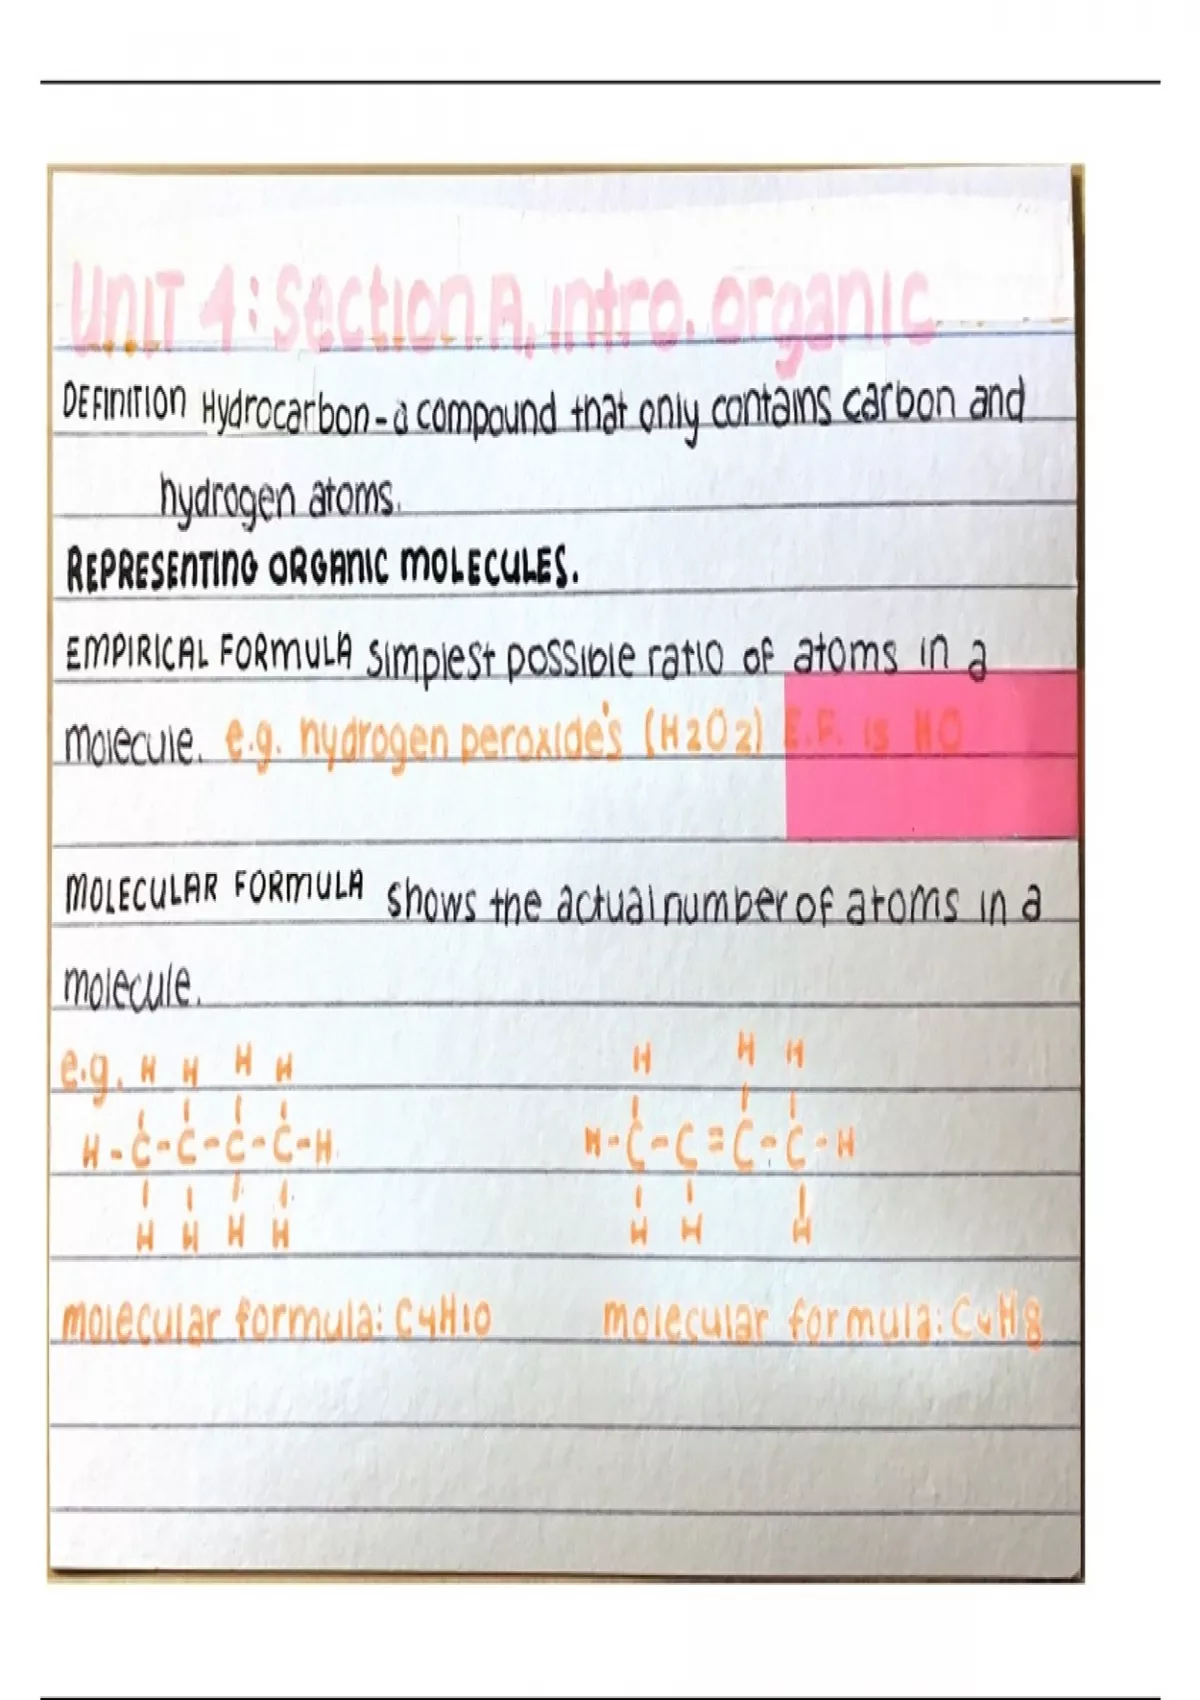 UNIT 4: Section A, intro. organic
DEFINITION Hydrocarbon - a compound that only contains carbon and
hydrogen atoms.
REPRESENTING ORGANIC MOLECULES.
EMPIRICAL FORMULA simplest possible ratio of atoms in a
molecule. e.g. hydrogen peroxide's (H2O2) E.F. is HO
MOLECULAR FORMULA shows the actual number of atoms in a
molecule.
e.g. H H H H H H H
H-C-C-C-C-H H-C-C=C-C-H
H H H H H H H
molecular formula: C4H10 molecular formula: C4H8